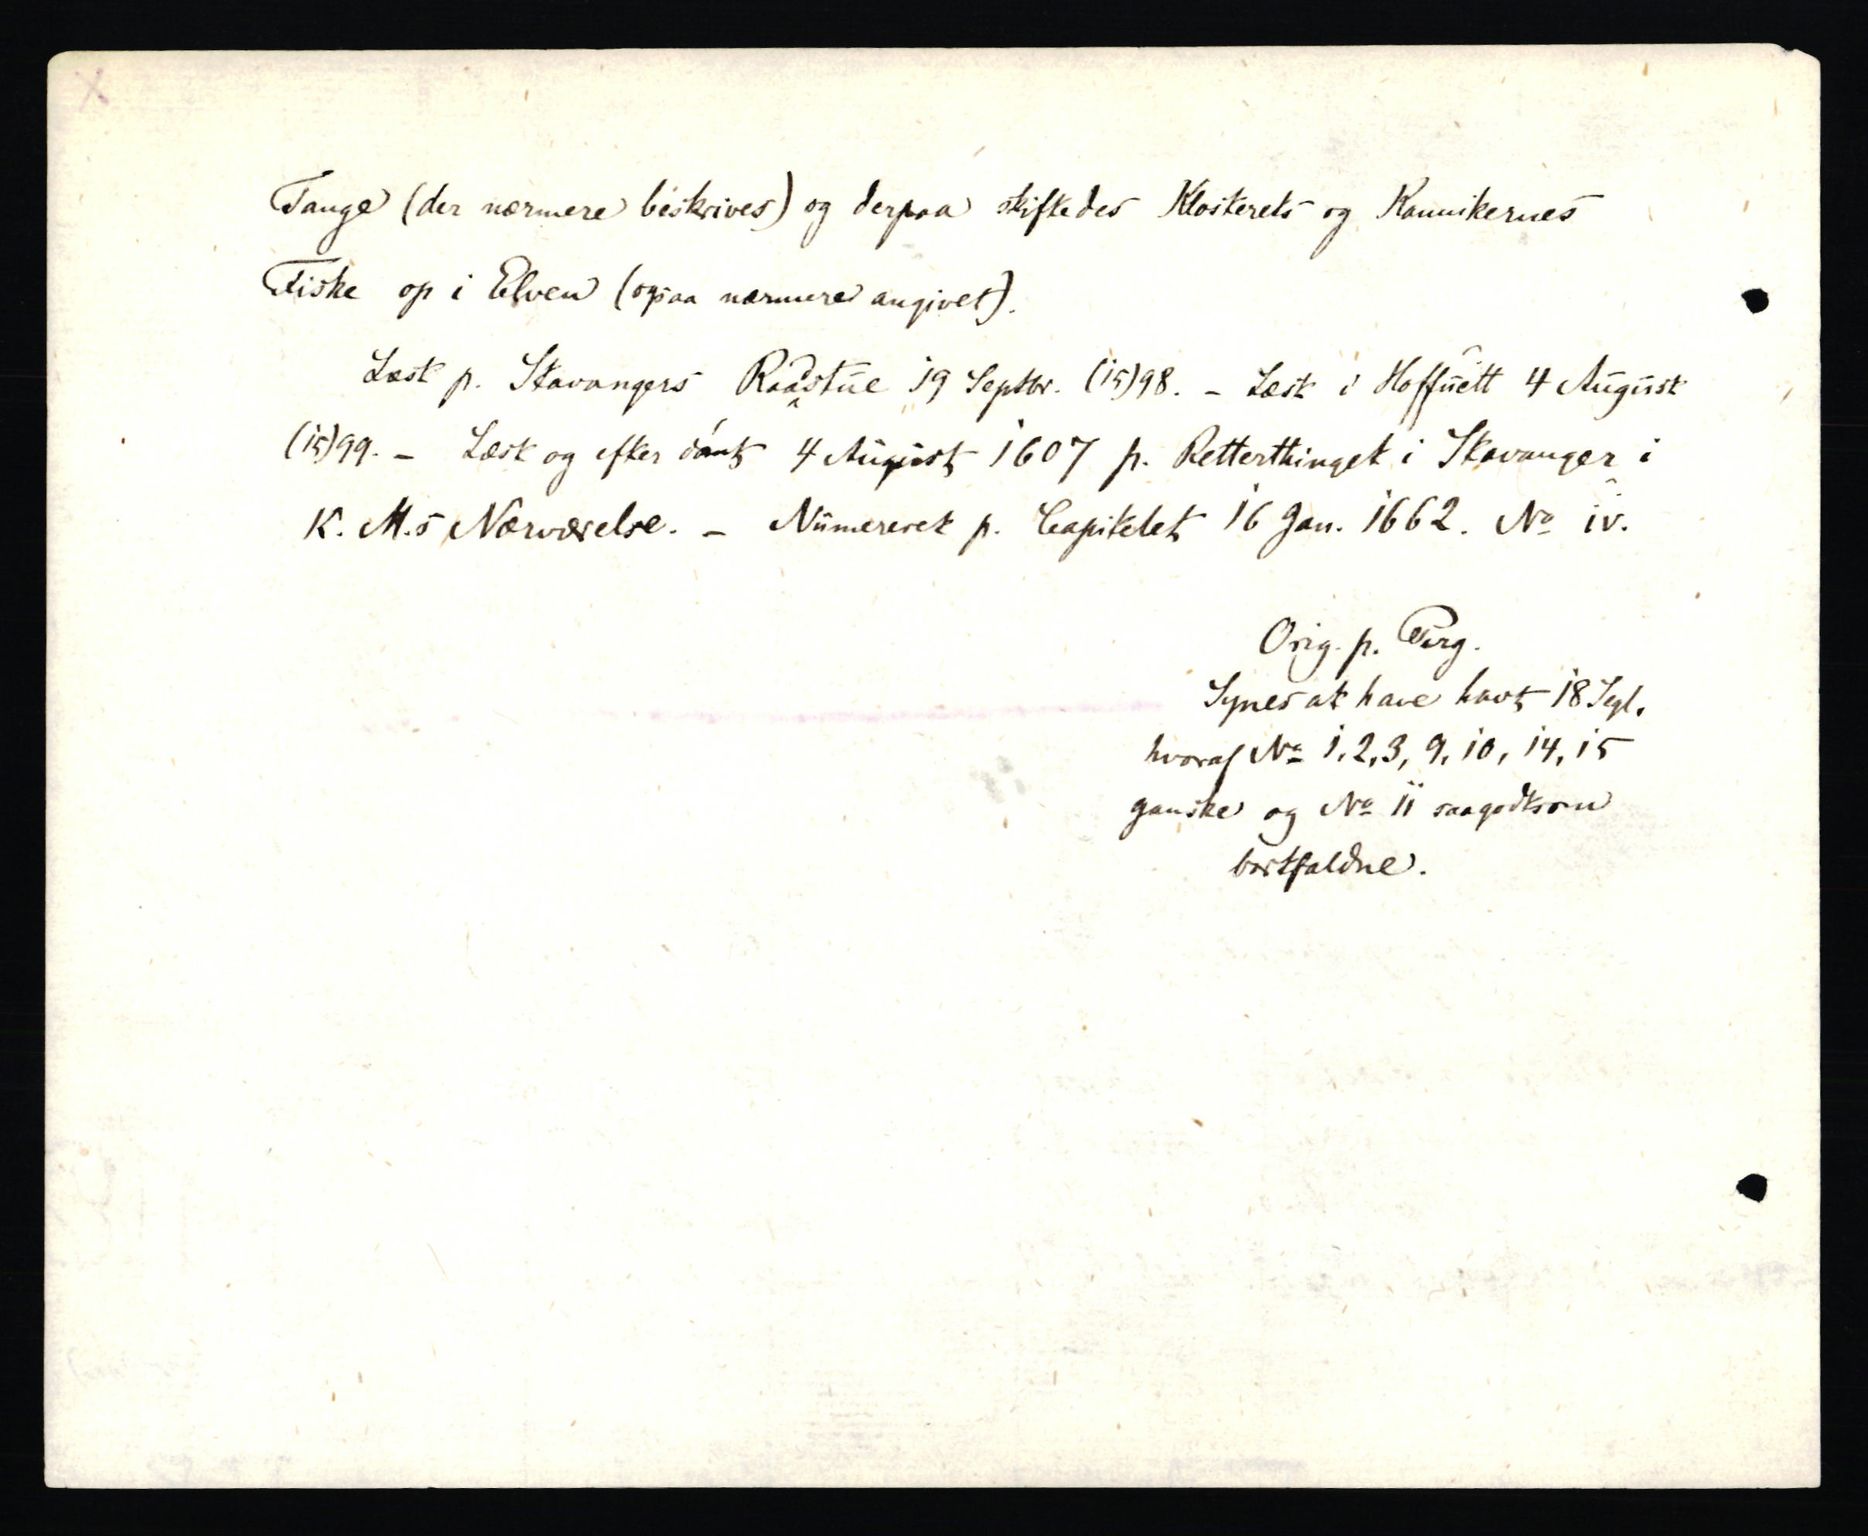 Tange (der nærmere beskrives) og derpaa skiftedes Klosterets og Kannikernes
Fiske op i Elven (ogsaa nærmere angivet).
Læst p. Stavangers Raadstue 19 Septbr. (15)98. – Læst i Hoffuett 4 August
(15)99. – Læst og efter 4 August 1607 p. Retterthinget i Stavanger i
K. M.s Nærværelse. – Numereret p. Capitelet 16 Jan. 1662. No iv.
Orig. p. Perg.
Synes at have havt 18 Segl,
hvoraf No 1, 2, 3, 9, 10, 14, 15
ganske og No 11 saagodtsom
bortfaldne.